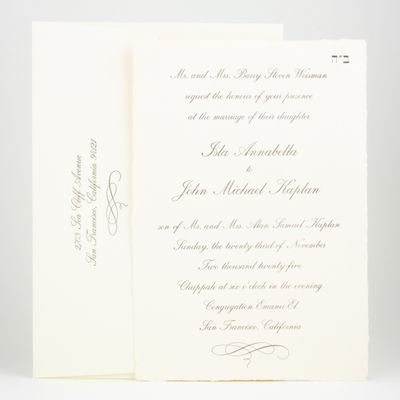 ב״ה
Mr. and Mrs. Barry Steven Weisman
request the honour of your presence
at the marriage of their daughter
Isla Annabella
to
John Michael Kaplan
son of Mr. and Mrs. Alan Samuel Kaplan
Sunday, the twenty third of November
Two thousand twenty-five
Chuppah at six o'clock in the evening
Congregation Emanu El
San Francisco, California
2763 Sea Cliff Avenue
San Francisco, California 94121